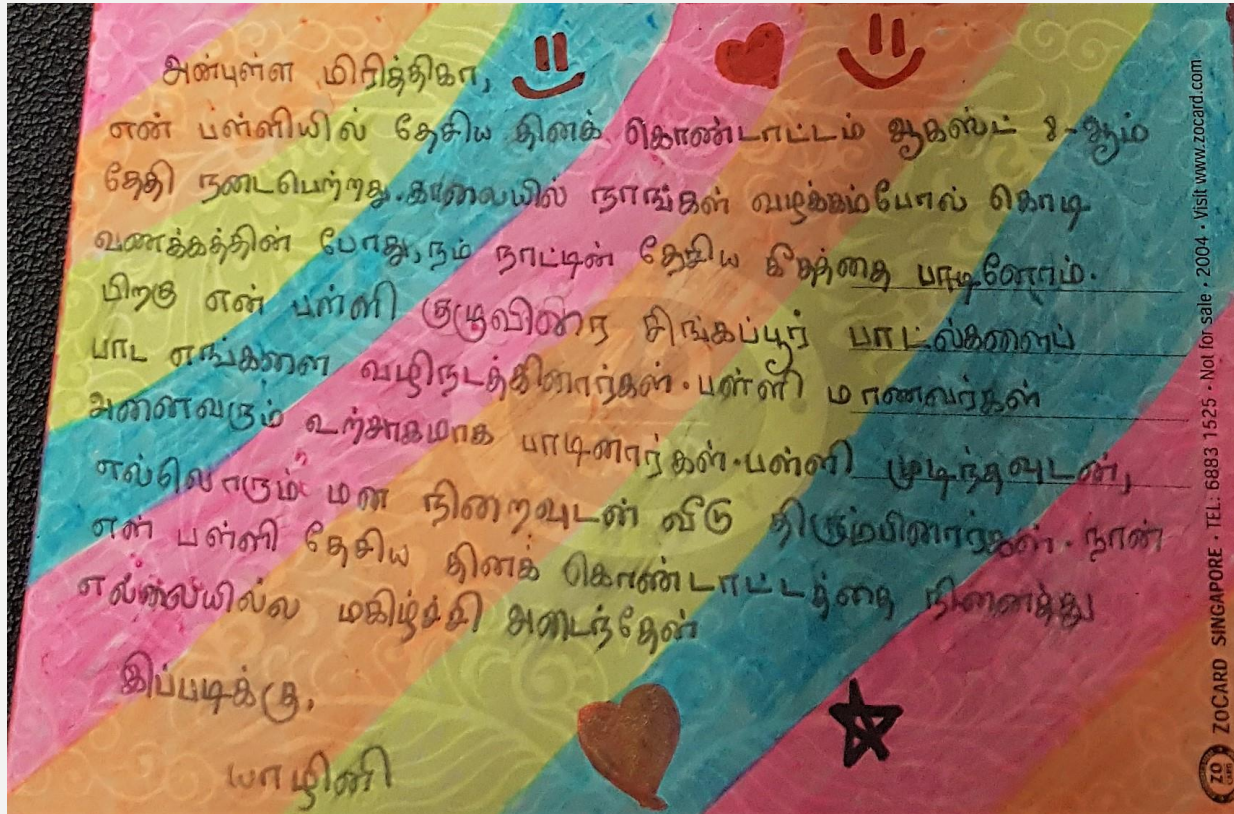 அன்புள்ள மிரித்திகா,
என் பள்ளியில் தேசிய தினக் கொண்டாட்டம் ஆகஸ்ட் 8-ஆம்
தேதி நடைபெற்றது. காலையில் நாங்கள் வழக்கம்போல் கொடி
வணக்கத்தின் போது, நம் நாட்டின் தேசிய கீதத்தை பாடினோம்.
பிறகு என் பள்ளி குழுவினர் சிங்கப்பூர் பாடல்களைப்
பாட எங்களை வழிநடத்தினார்கள். பள்ளி மாணவர்கள்
அனைவரும் உற்சாகமாக பாடினார்கள். பள்ளி முடிந்தவுடன்,
எல்லொரும் மன நிறைவுடன் வீடு திரும்பினார்கள். நான்
என் பள்ளி தேசிய தினக் கொண்டாட்டத்தை நினைத்து
எல்லையில்ல மகிழ்ச்சி அடைந்தேன்
இப்படிக்கு,
யாழினி
ZO CARD ZOCARD SINGAPORE • TEL: 6883 1525 • Not for sale • 2004 • Visit www.zocard.com